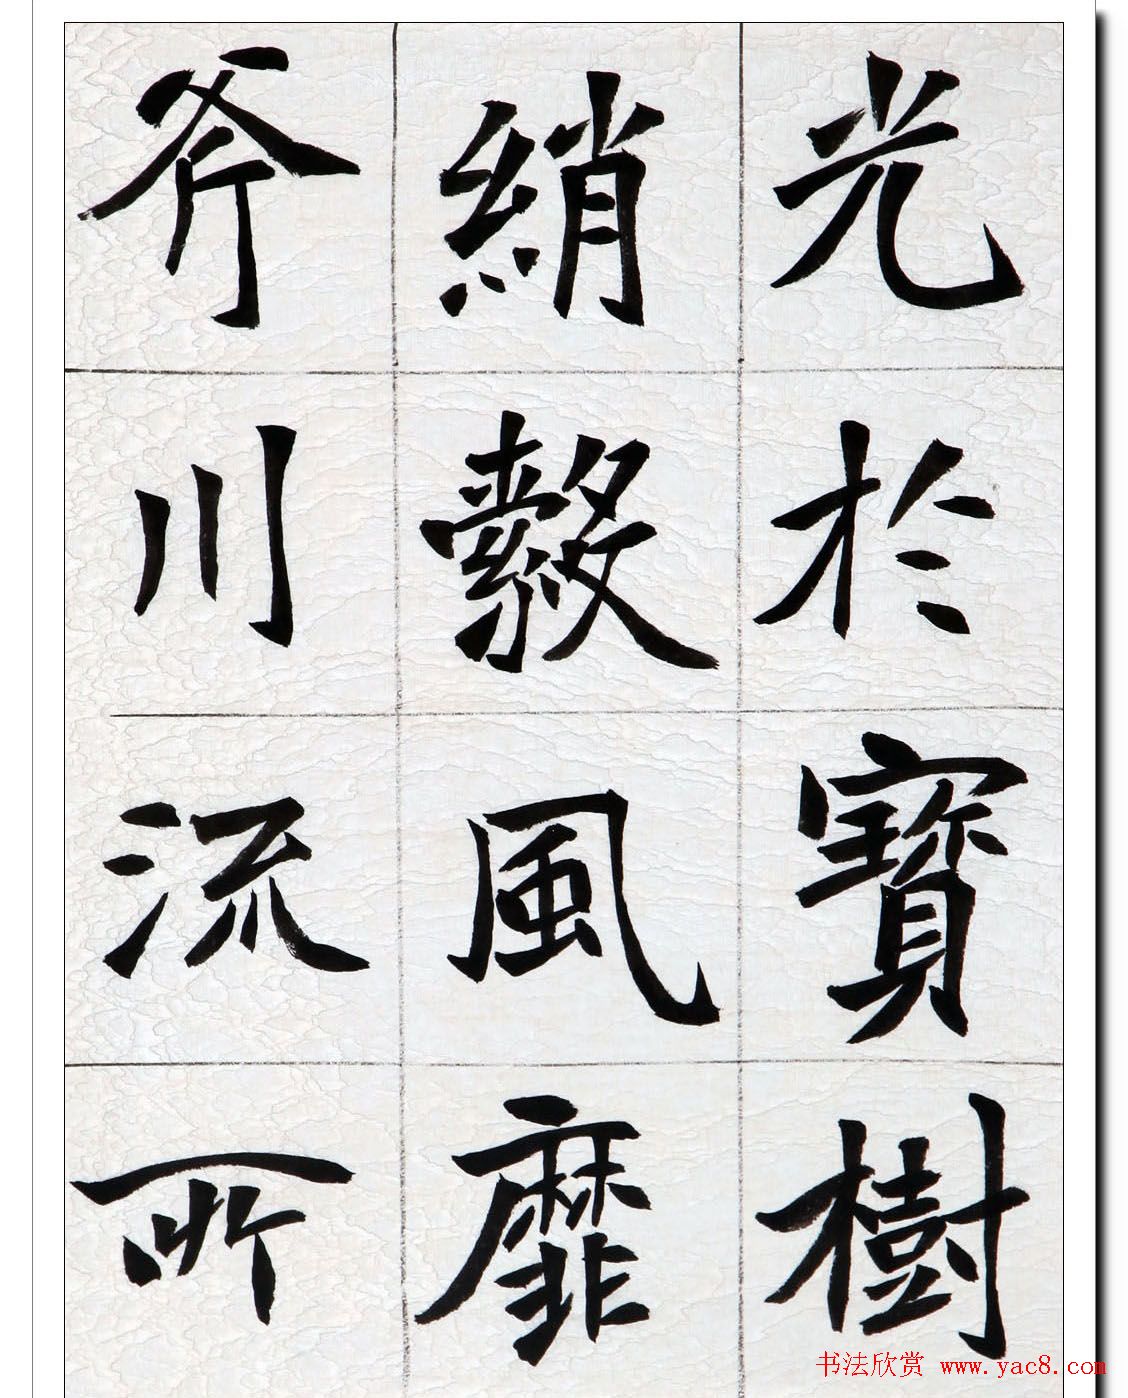 光於寶樹
綃縠風靡
斧川流所
书法欣赏 www.yac8.com